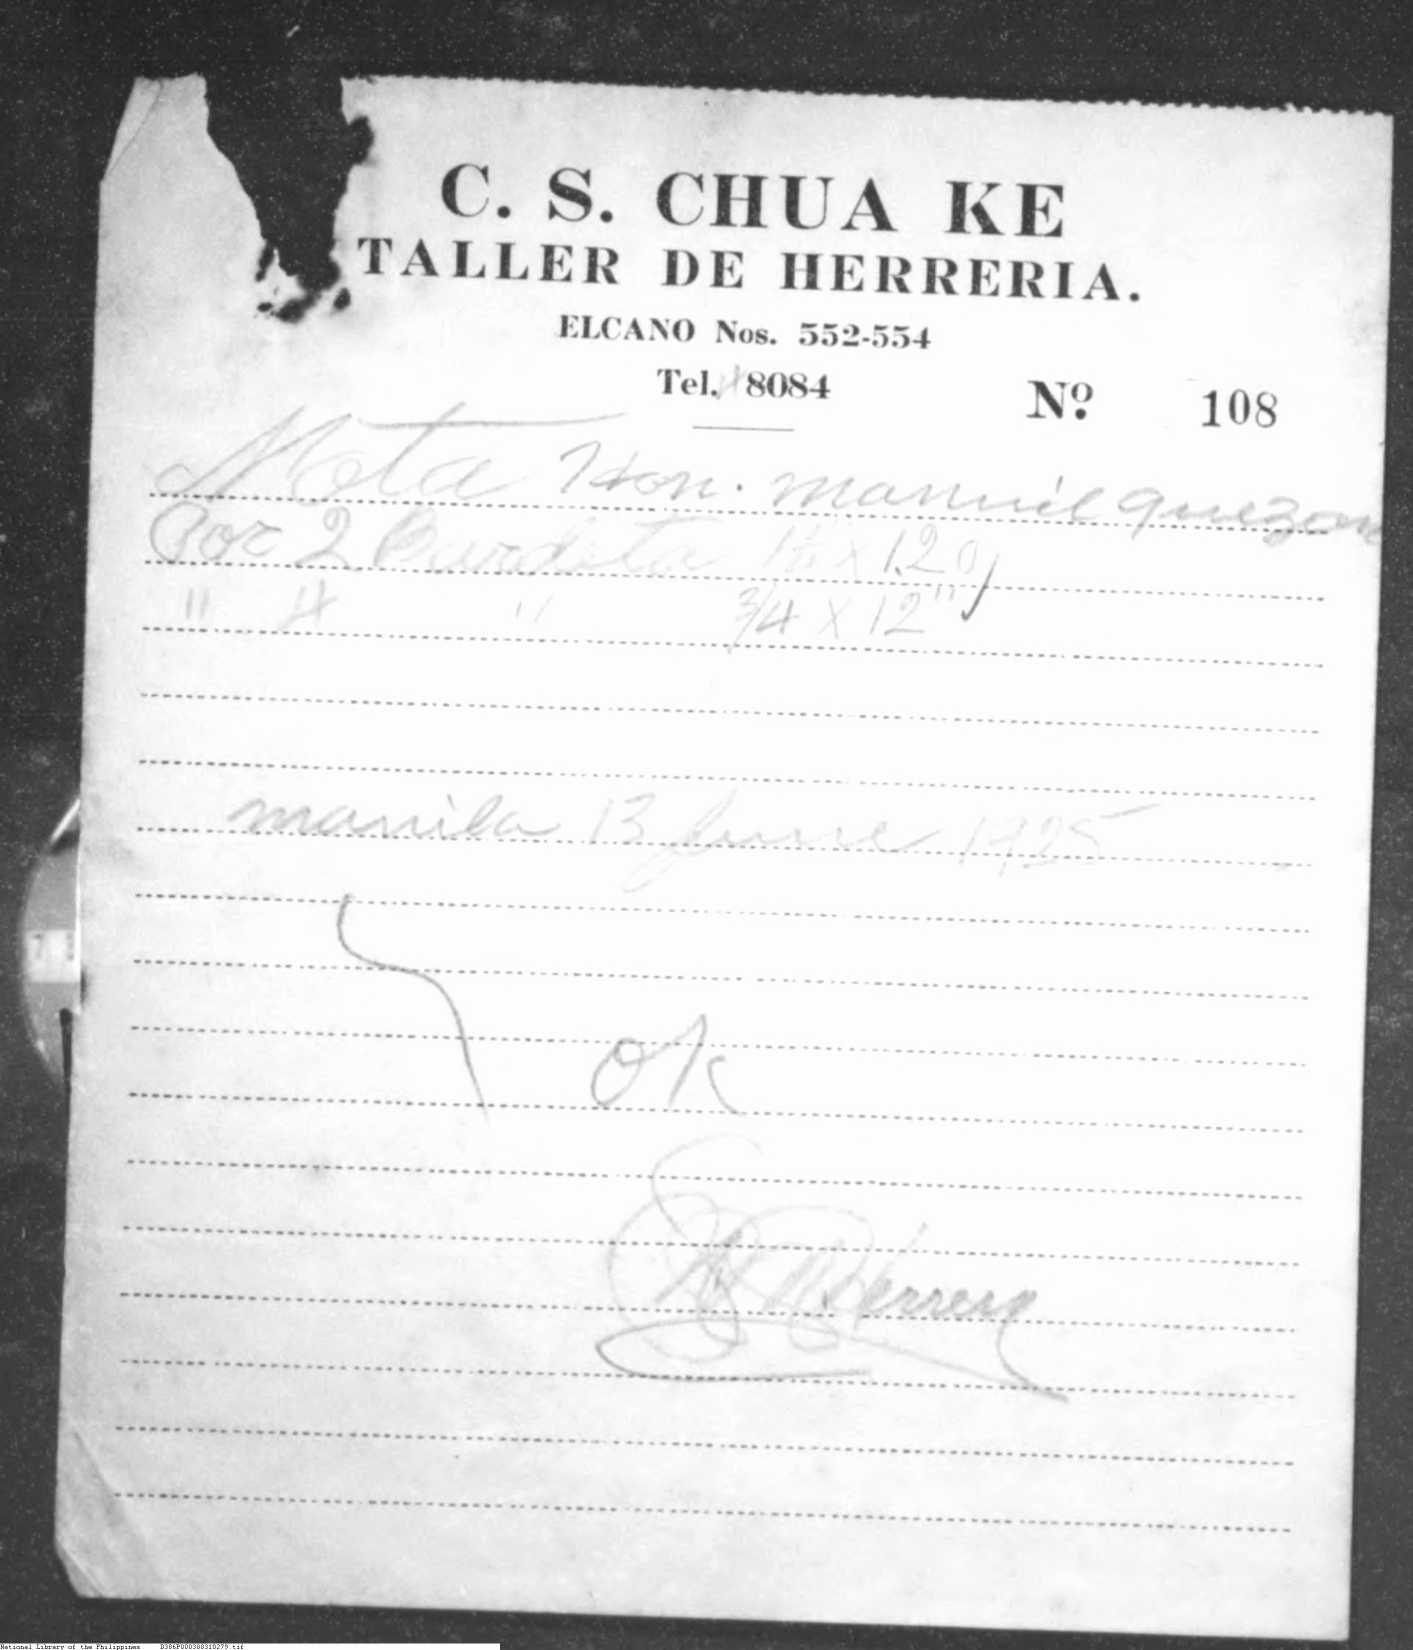 C. S. CHUA KE
TALLER DE HERRERIA.
ELCANO Nos. 552-554
Tel. 8084
Nº. 108
Nota Hon. manuil quezon
Por 2 1½ x 1.20
" 4 " 3/4 x 12"
manila 13 June 1925
OK
Herrera
National Library of the Philippines D386P000300310279.tif